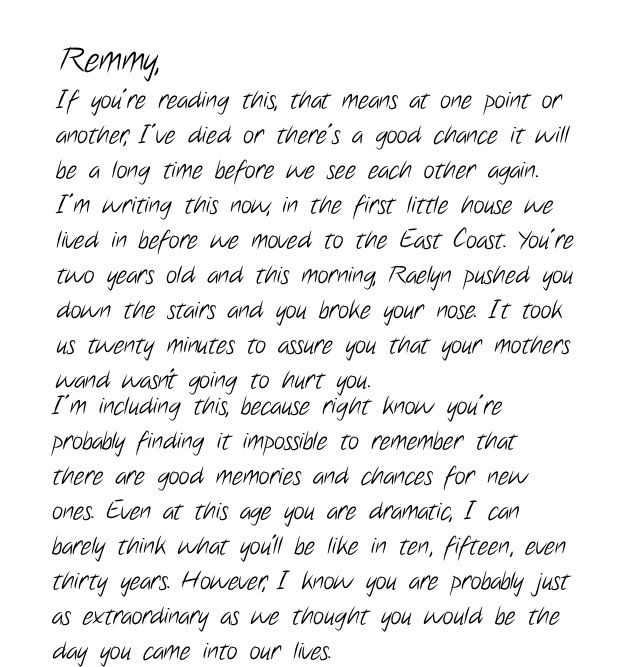 Remmy,
If you're reading this, that means at one point or
another, I've died or there's a good chance it will
be a long time before we see each other again.
I'm writing this now, in the first little house we
lived in before we moved to the East Coast. You're
two years old and this morning, Raelyn pushed you
down the stairs and you broke your nose. It took
us twenty minutes to assure you that your mothers
wand wasn't going to hurt you.
I'm including this, because right know you're
probably finding it impossible to remember that
there are good memories and chances for new
ones. Even at this age you are dramatic, I can
barely think what you'll be like in ten, fifteen, even
thirty years. However, I know you are probably just
as extraordinary as we thought you would be the
day you came into our lives.